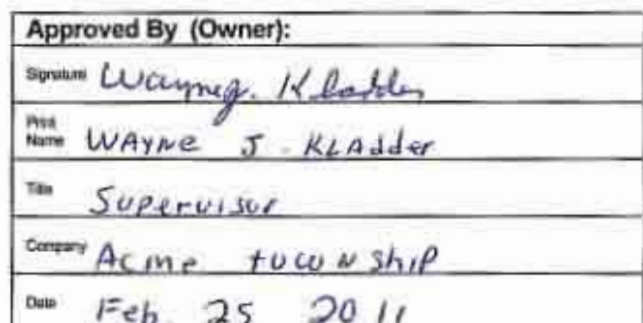 Approved By (Owner):
Signature Wayne J. Kladder
Print Name WAYNE J. KLAdder
Title Supervisor
Company Acme township
Date Feb 25 2011